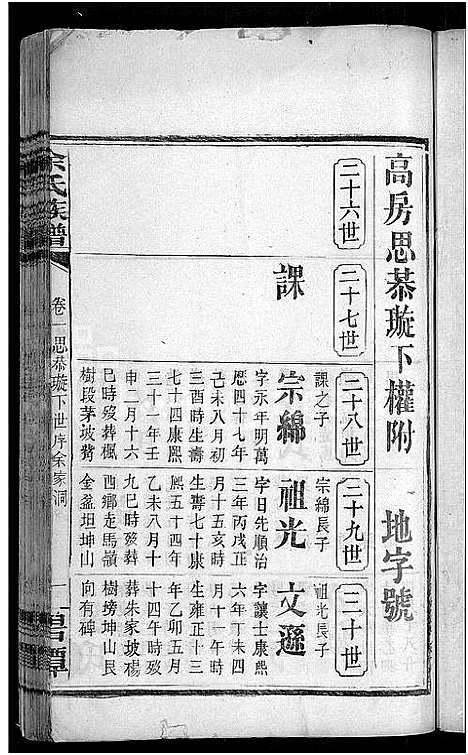 高房思恭璇下權附 地字號
二十六世
二十七世
課
二十八世
課之子
宗綿
字永年明萬
厯四十七年
己未八月初
三酉時生壽
七十四康熙
三十一年壬
申二月十六
巳時歿葬楓
樹段茅坡背
二十九世
宗綿長子
祖光
字日先順治
三年丙戌正
月十五亥時
生壽七十康
熙五十四年
乙未八月十
九巳時歿葬
西鄉走馬嶺
金盆坦坤山
三十世
祖光長子
文遜
字讓士康熙
六年丁未四
月十一午時
生雍正十三
年乙卯五月
十四午時歿
葬朱家坡楊
樹塝坤山艮
向有碑
余氏族譜
卷一思恭璇下世序余家洞
一